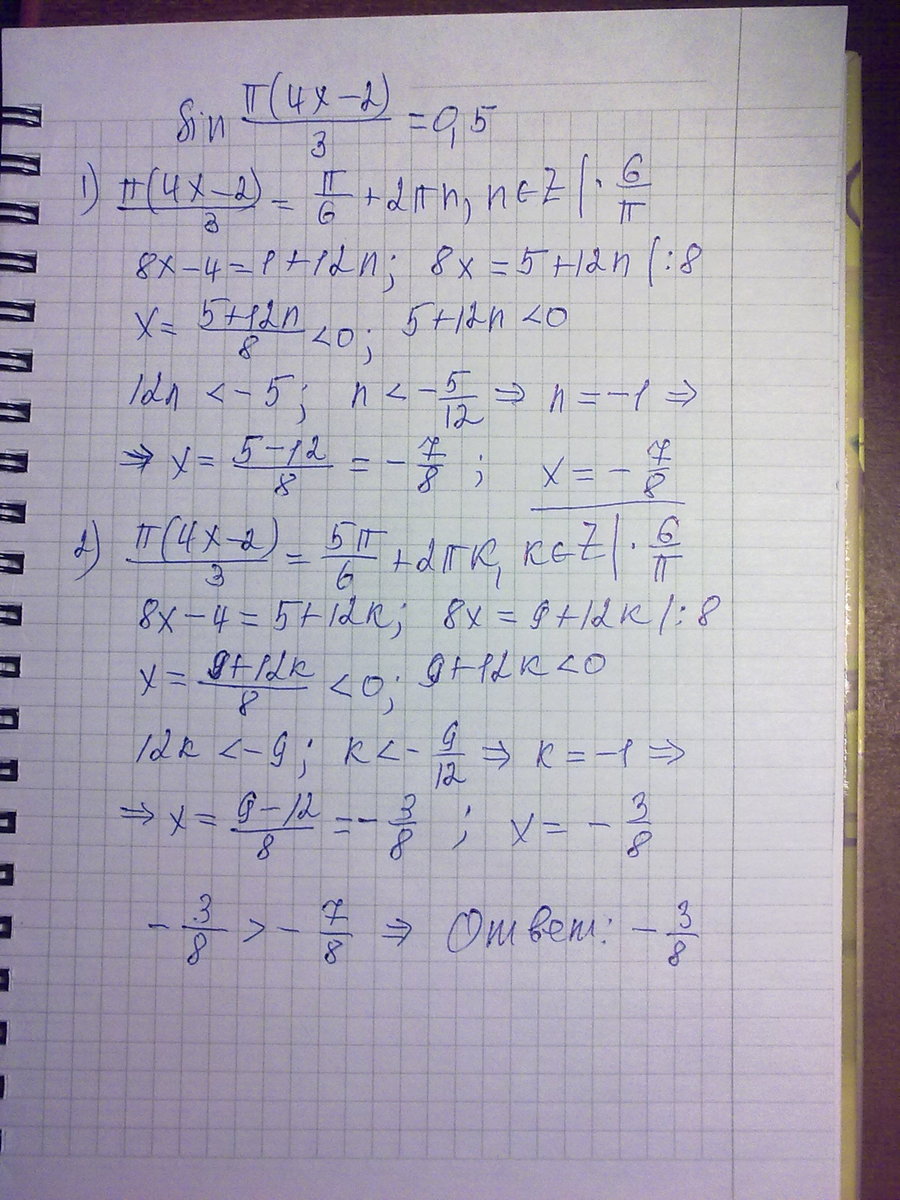 sin π(4x-2)/3 = 0,5
1) π(4x-2)/3 = π/6 + 2πn, n∈Z | · 6/π
8x-4=1+12n; 8x=5+12n |:8
x= (5+12n)/8 <0; 5+12n<0
12n <-5; n<-5/12 ⇒ n=-1 ⇒
⇒ x= (5-12)/8 = -7/8 ; x=-7/8
2) π(4x-2)/3 = 5π/6 + 2πк, к∈Z | · 6/π
8x-4=5+12к; 8x=9+12к |:8
x= (9+12к)/8 <0; 9+12к<0
12к <-9; к<-9/12 ⇒ к=-1 ⇒
⇒ x= (9-12)/8 =-3/8 ; x= -3/8
-3/8 > -7/8 ⇒ Ответ: -3/8